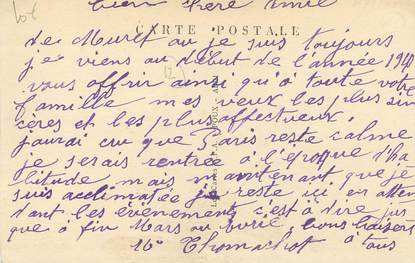 Lot
bien chère amie
CARTE POSTALE
de Muret ou je suis toujours
je viens au début de l'année 1940
vous offrir ainsi qu'à toute votre
famille mes veux les plus sin
cères et les plus affectueux.
j'aurai cru que Paris reste calme
je serais rentrée à l'epoque d'ha
bitude mais maintenant que je
suis acclimatée je reste ici en atten
dant les évènements c'est à dire jus
que à fin Mars ou Avril bons baisers
à tous